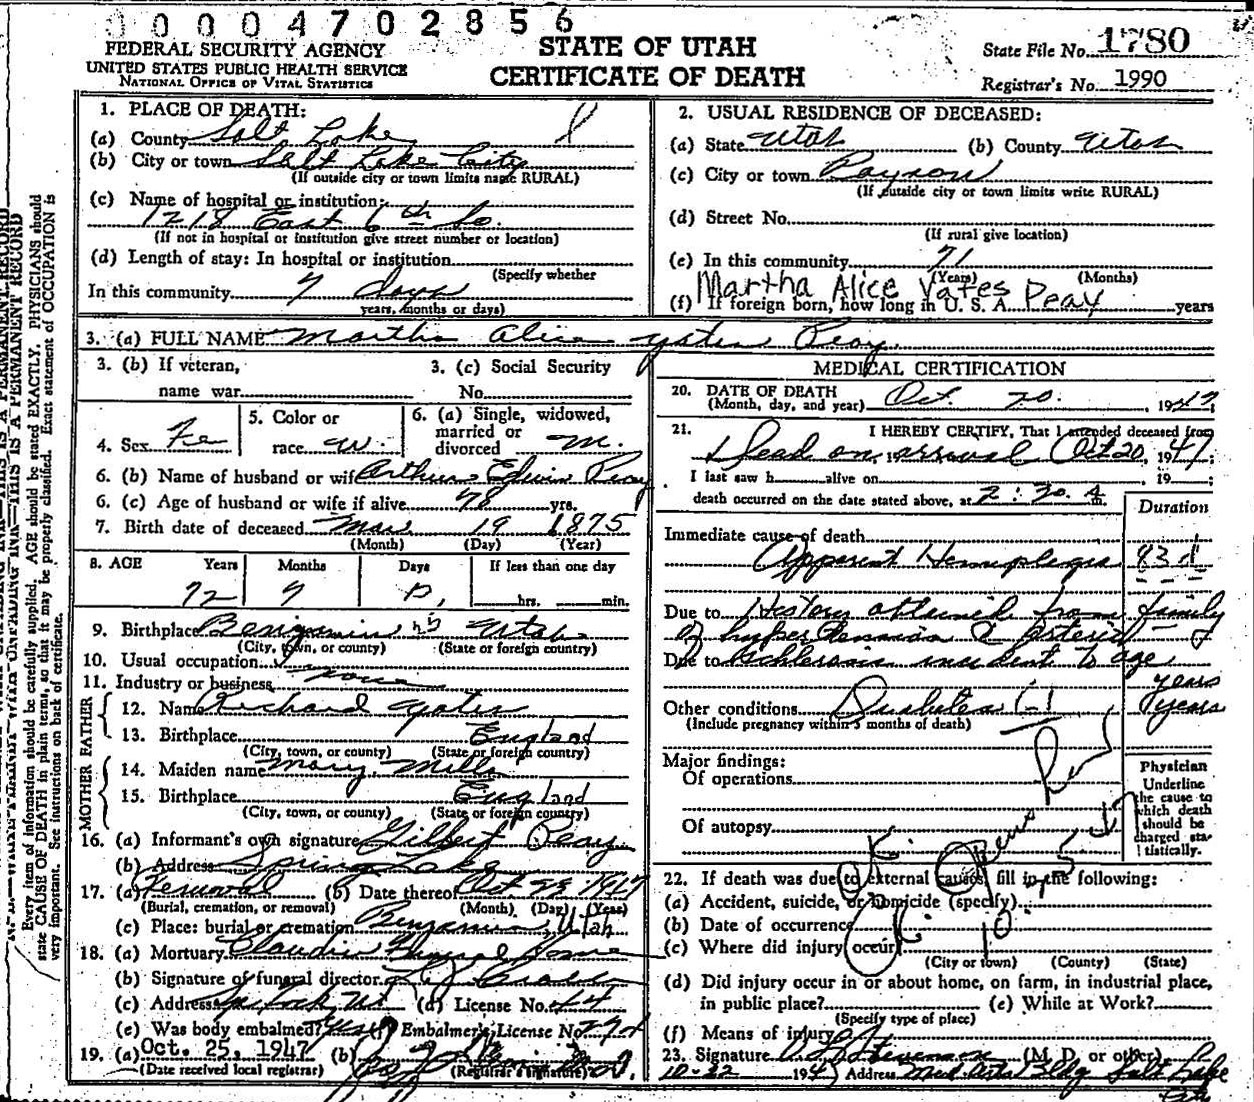 0 0 0 0 4 7 0 2 8 5 6
FEDERAL SECURITY AGENCY
UNITED STATES PUBLIC HEALTH SERVICE
NATIONAL OFFICE OF VITAL STATISTICS
STATE OF UTAH
CERTIFICATE OF DEATH
State File No. 1780
Registrar's No. 1990
1. PLACE OF DEATH:
(a) County Salt Lake
(b) City or town Salt Lake City
(If outside city or town limits name RURAL)
(c) Name of hospital or institution:
1218 East 6th So.
(If not in hospital or institution give street number or location)
(d) Length of stay: In hospital or institution
(Specify whether
In this community 7 days
years, months or days)
2. USUAL RESIDENCE OF DECEASED:
(a) State Utah (b) County Utah
(c) City or town Payson
(If outside city or town limits write RURAL)
(d) Street No.
(If rural give location)
(e) In this community 71
(Years) (Months)
Martha Alice Yates Peay
(f) If foreign born, how long in U. S. A. years
3. (a) FULL NAME Martha Alice Yates Peay
3. (b) If veteran,
name war
3. (c) Social Security
No.
4. Sex Fe
5. Color or
race W.
6. (a) Single, widowed,
married or
divorced M.
6. (b) Name of husband or wife Arthur Edwin Peay
6. (c) Age of husband or wife if alive 78 yrs.
7. Birth date of deceased Mar 19 1875
(Month) (Day) (Year)
8. AGE Years Months Days If less than one day
72 7 hrs. min.
9. Birthplace Benjamin Utah
(City, town, or county) (State or foreign country)
10. Usual occupation
11. Industry or business none
FATHER
12. Name Richard Yates
13. Birthplace England
(City, town, or county) (State or foreign country)
MOTHER
14. Maiden name Mary Mills
15. Birthplace England
(City, town, or county) (State or foreign country)
16. (a) Informant's own signature Gilbert Peay
(b) Address Spring Lake
17. (a) Removal (b) Date thereof Oct 23 1947
(Burial, cremation, or removal) (Month) (Day) (Year)
(c) Place: burial or cremation Benjamin, Utah
18. (a) Mortuary Claudin Funeral Home
(b) Signature of funeral director
(c) Address (d) License No. 44
(e) Was body embalmed? Yes (f) Embalmer's License No.
19. (a) Oct. 25, 1947 (b)
(Date received local registrar) (Registrar's signature)
MEDICAL CERTIFICATION
20. DATE OF DEATH
(Month, day, and year) Oct. 20. , 1947
21. I HEREBY CERTIFY, That I attended deceased from
Dead on arrival Oct 20, 1947;
I last saw h alive on , 19 ;
death occurred on the date stated above, at 2:30 A m.
Duration
Immediate cause of death
Apparent Hemiplegia
Due to History obtained from family
of hypertension & arterio-
Due to sclerosis incident to age,
years
Other conditions Diabetes years
(Include pregnancy within 3 months of death)
Major findings:
Of operations
Of autopsy
Physician
Underline
the cause to
which death
should be
charged sta-
tistically.
22. If death was due to external causes, fill in the following:
(a) Accident, suicide, or homicide (specify)
(b) Date of occurrence
(c) Where did injury occur
(City or town) (County) (State)
(d) Did injury occur in or about home, on farm, in industrial place,
in public place? (e) While at Work?
(Specify type of place)
(f) Means of injury
23. Signature Stevenson (M. D. or other)
10-22 194 Address Med Arts Bldg Salt Lake
City
Every item of information should be carefully supplied. AGE should be stated EXACTLY. PHYSICIANS should
state CAUSE OF DEATH in plain terms, so that it may be properly classified. Exact statement of OCCUPATION is
very important. See instructions on back of certificate.
THIS IS A PERMANENT RECORD